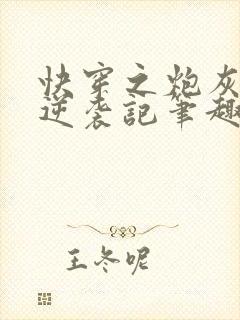 快穿之炮灰
逆袭記筆趣
王冬呢